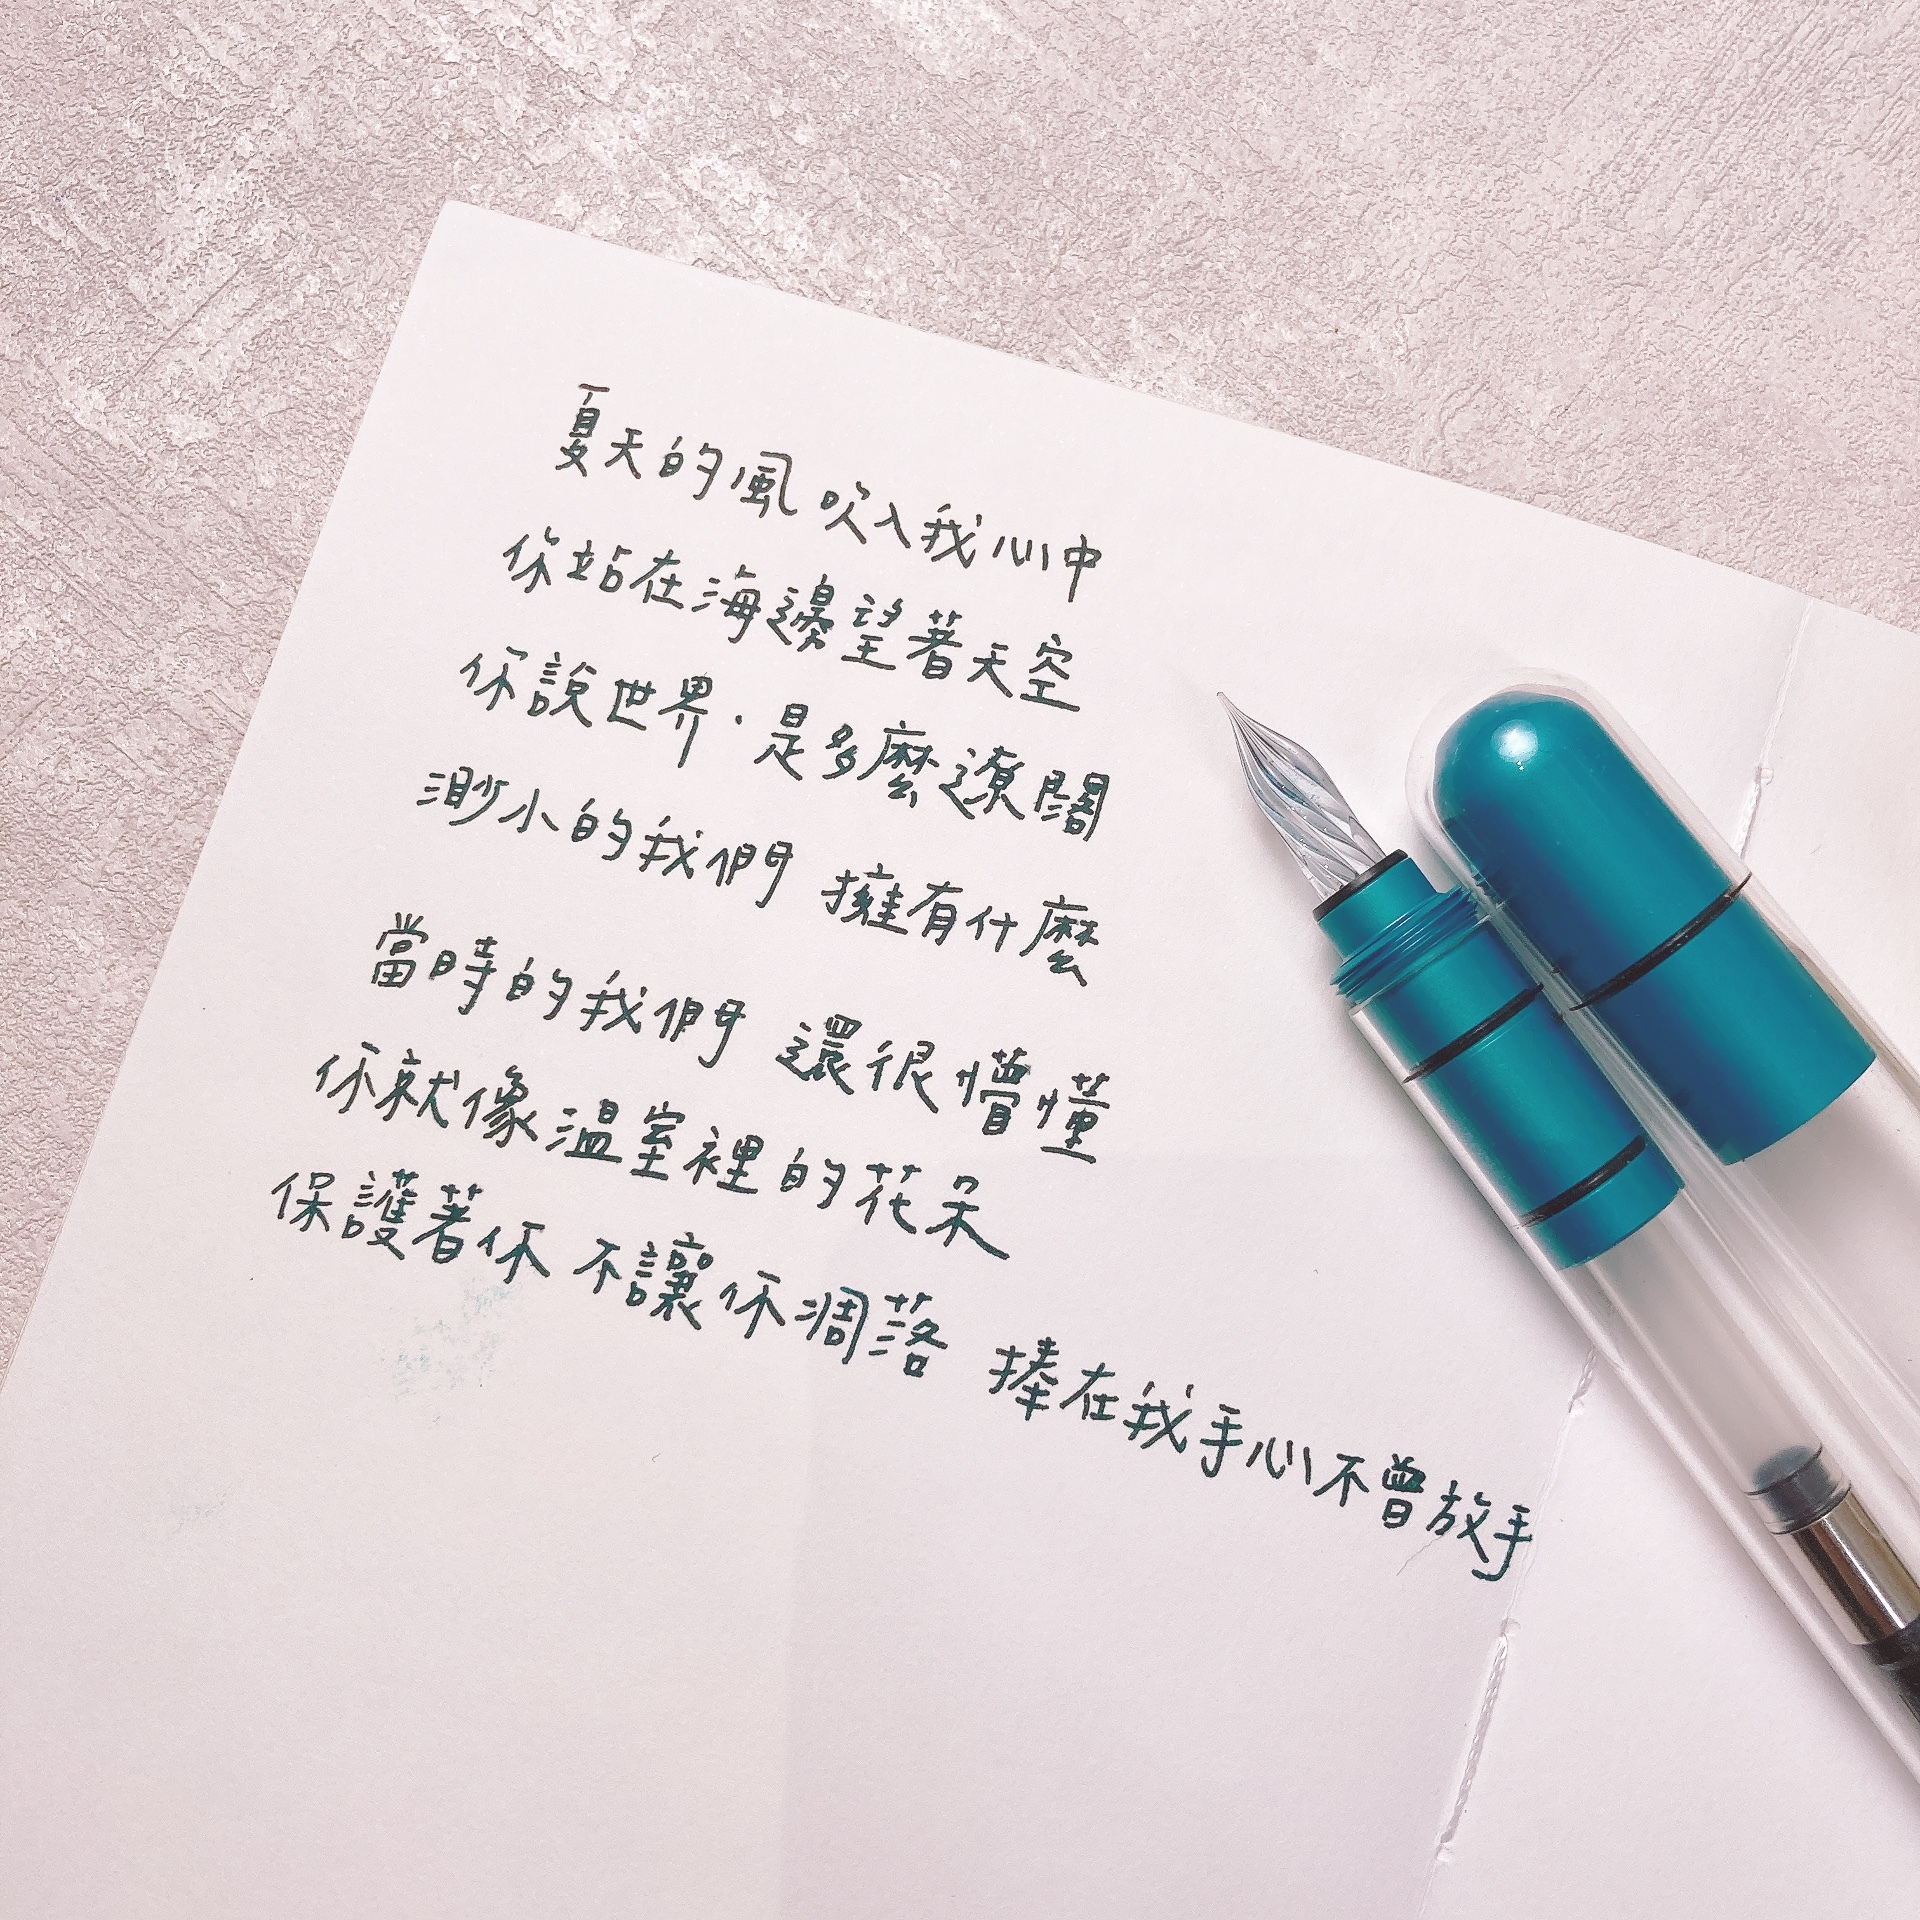 夏天的風 吹入我心中
你站在海邊望著天空
你說世界·是多麼遼闊
渺小的我們 擁有什麼
當時的我們 還很懵懂
你就像溫室裡的花朵
保護著你 不讓你凋落 捧在我手心不曾放手